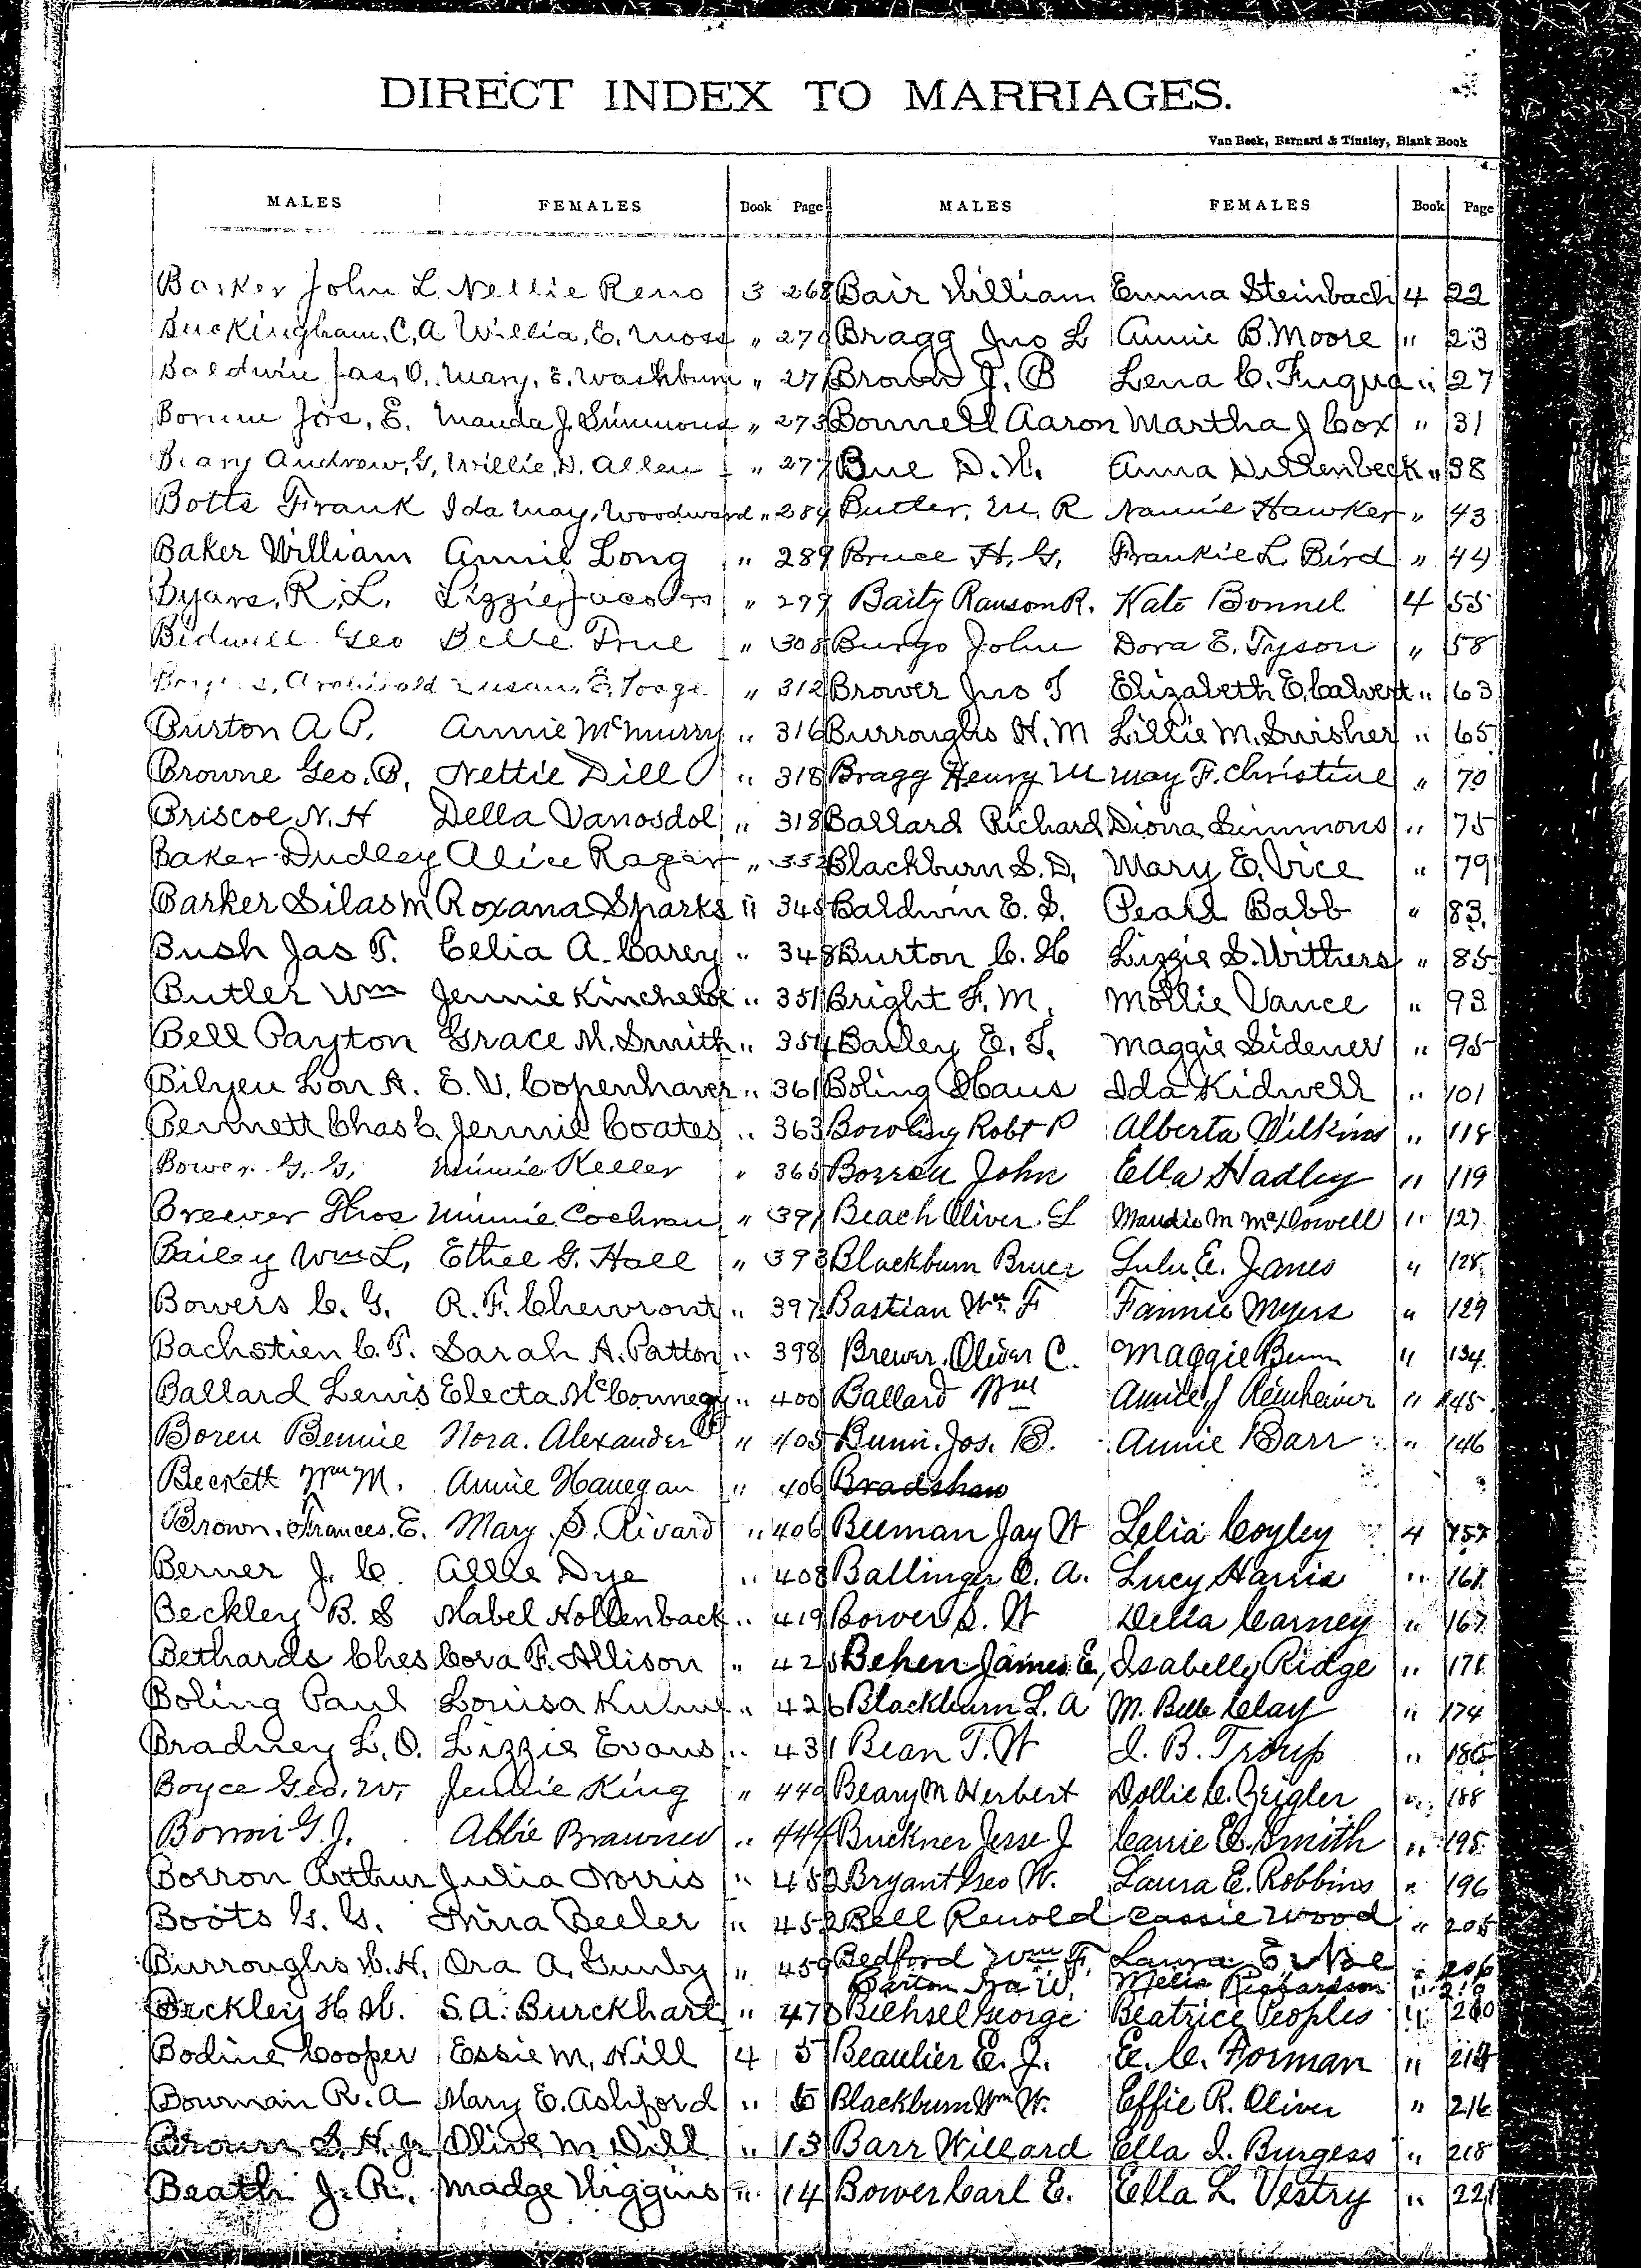 DIRECT INDEX TO MARRIAGES.
Van Beek, Barnard & Tinsley, Blank Book
MALES FEMALES Book Page MALES FEMALES Book Page
Barker John L Nellie Reno 3 268 Bair William Emma Steinbach 4 22
Buckingham, C, A Willia, E. Moss " 270 Bragg Jno L Annie B. Moore " 23
Baldwin Jas, O. Mary, E. Washburn " 271 Brown J. B Lena C. Fuqua " 27
Jos, E. Manda J. Simmons " 273 Bonnell Aaron Martha J Cox " 31
Andrew, G, Willie, D. Allen " 277 Bue D. Anna " 38
Botts Frank Ida May, Woodward " 284 Butler, M. R Nannie Hawker " 43
Baker William Annie Long " 289 Bruce H. G, Frankie L. Bird " 44
Byars, R. L. Lizzie Jacobs " 297 Baity Ransom R. Kate Bonnel 4 55
Bidwell Geo Belle True " 308 Burgo John Dora E. Tyson " 58
Archibald Susan, E, " 312 Brower Jno T Elizabeth E. Calvert " 63
Burton A P. Annie McMurry " 316 Burroughs H. M Lillie M. Swisher " 65
Browne Geo. B, Nettie Dill " 318 Bragg Henry M May F. Christine " 70
Briscoe N. H Della Vanosdol " 318 Ballard Richard Diona Simmons " 75
Baker Dudley Alice Ragar " 332 Blackburn S. D, Mary E. Vice " 79
Barker Silas M Roxana Sparks " 345 Baldwin E. S. Pearl Babb " 83
Bush Jas T. Celia A. Carey " 348 Burton C. H Lizzie S. Withers " 85
Butler Wm Jennie Kincheloe " 351 Bright F. M. Mollie Vance " 93
Bell Payton Grace M. Smith " 354 Bailey E. T. Maggie Sidener " 95
Bilyeu Lon A. E. V. Copenhaver " 361 Boling Haus Ida Kidwell " 101
Bennett Chas C. Jennie Coates " 363 Bowling Robt P Alberta Wilkins " 118
Bower G. G, Minnie Keller " 365 John Ella Hadley " 119
Brewer Thos Minnie Cochran " 391 Beach Oliver L Maudie M McDowell " 127
Bailey Wm L, Ethel G. Hall " 393 Blackburn Bruce Lulu E. Janes " 128
Bowers C. G. R. F. Cheuvront " 397 Bastian Wm. F Fannie Myers " 129
Bachstien C. T. Sarah A. Patton " 398 Brewer, Oliver C. Maggie Bunn " 134
Ballard Lewis Electa " 400 Ballard Wm J " 145
Boren Bennie Nora. Alexander " 405 Bunn. Jos. B. Annie Barr " 146
Beckett Wm M. Annie Hanegan " 406 Bradshaw
Brown, Frances, E. Mary S. Rivard " 406 Beeman Jay W Lelia Coyley 4
Berner J. C. Allie Dye " 408 Ballinger O. A. Lucy Harris " 161
Beckley B. S Mabel Hollenback " 419 Bower S. W Della Carney " 167
Bethards Ches Cora F. Allison " 425 Behen James E, Isabelle Ridge " 171
Boling Paul Louisa Kuhne " 426 Blackburn L. A M. Belle Clay " 174
Bradney L. O. Lizzie Evans " 431 Bean T. W I. B. Troup " 186
Boyce Geo. W. Jennie King " 440 Beary M Herbert Dollie C. Zeigler " 188
Borron G. J. Abbie Brawner " 444 Buckner Jesse J Carrie E. Smith " 195
Borron Arthur Julia Norris " 452 Bryant Geo W. Laura E. Robbins " 196
Boots G. G. Beeler " 452 Bell Renold Cassie Wood " 205
Burroughs C. H, Ora A. Gunby " 459 Bedford Wm F. Laura E Noel " 206
Barton Ira W. Richardson " 210
Beckley H. M. S. A. Burckhart " 470 Biehsel George Beatrice Peoples " 210
Bodine Cooper Essie M, Hill 4 5 Beaulier E. J. E. C. Forman " 214
Bowman R. A Mary E. Ashford " 6 Blackburn Wm W. Effie R. Oliver " 216
Brown S. H. Jr Olive M Dill " 13 Barr Willard Ella I. Burgess " 218
Beath J. R. Madge Higgins " 14 Bower Carl E. Ella L. Vestry " 221